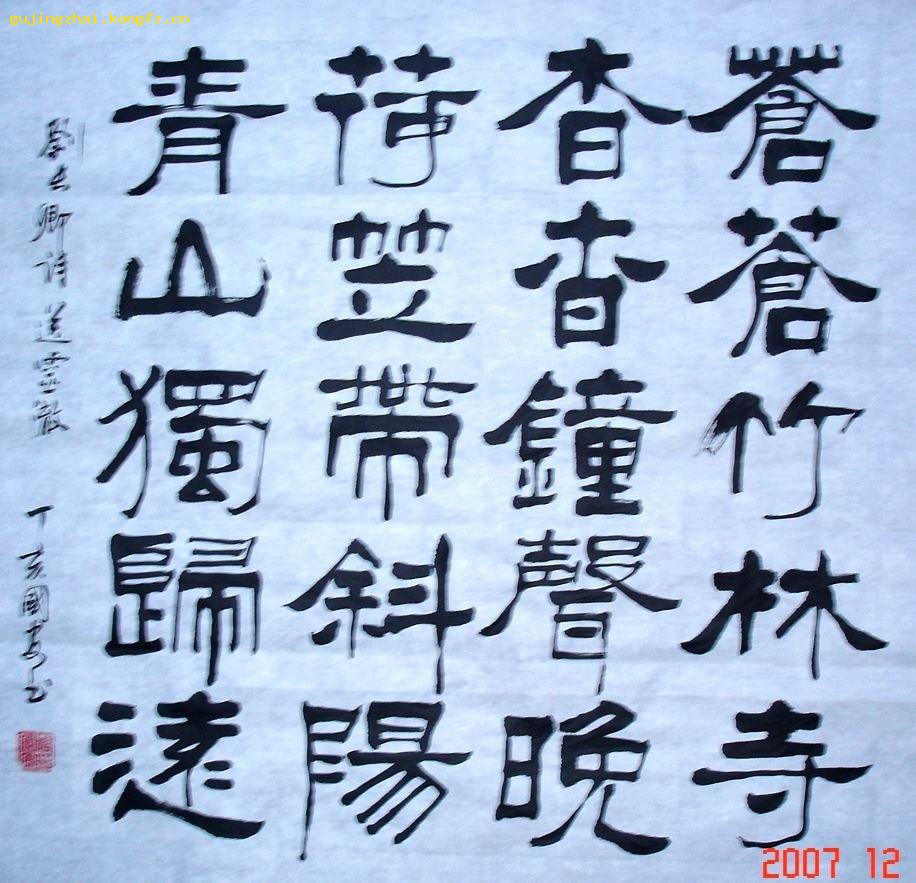 gujingzhai.kongfz.cn
蒼蒼竹林寺
杳杳鐘聲晚
荷笠帶斜陽
青山獨歸遠
劉長卿詩送靈澈
丁亥國
2007 12